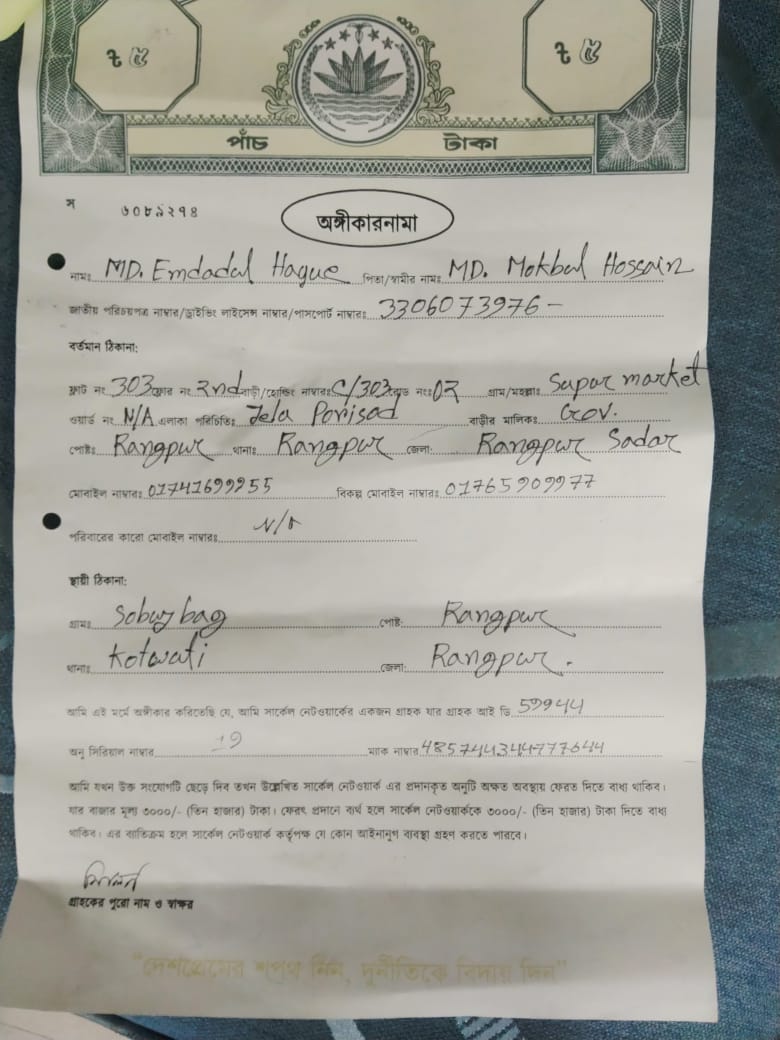 ৳ ৫ ৳ ৫
পাঁচ টাকা
স ৬০৮৯২৭৪
অঙ্গীকারনামা
নামঃ MD. Emdadal Haque পিতা/স্বামীর নামঃ MD. Mokbal Hossain
জাতীয় পরিচয়পত্র নাম্বার/ড্রাইভিং লাইসেন্স নাম্বার/পাসপোর্ট নাম্বারঃ 3306073976 -
বর্তমান ঠিকানা:
ফ্লাট নং 303 ফ্লোর নং 2nd বাড়ী/হোল্ডিং নাম্বারঃ C/303 রোড নংঃ 02 গ্রাম/মহল্লাঃ Supar market
ওয়ার্ড নং N/A এলাকা পরিচিতিঃ Jela Porisad বাড়ীর মালিকঃ Gov.
পোষ্টঃ Rangpur থানাঃ Rangpur জেলা: Rangpur Sadar
মোবাইল নাম্বারঃ 01741699955 বিকল্প মোবাইল নাম্বারঃ 01765909977
পরিবারের কারো মোবাইল নাম্বারঃ N/A
স্থায়ী ঠিকানা:
গ্রামঃ Sobuj bag পোষ্ট: Rangpur
থানাঃ Kotwali জেলা: Rangpur.
আমি এই মর্মে অঙ্গীকার করিতেছি যে, আমি সার্কেল নেটওয়ার্কের একজন গ্রাহক যার গ্রাহক আই ডি 59944
অনু সিরিয়াল নাম্বার 19 ম্যাক নাম্বার 485744344777644
আমি যখন উক্ত সংযোগটি ছেড়ে দিব তখন উল্লেখিত সার্কেল নেটওয়ার্ক এর প্রদানকৃত অনুটি অক্ষত অবস্থায় ফেরত দিতে বাধ্য থাকিব।
যার বাজার মূল্য ৩০০০/- (তিন হাজার) টাকা। ফেরৎ প্রদানে ব্যর্থ হলে সার্কেল নেটওয়ার্ককে ৩০০০/- (তিন হাজার) টাকা দিতে বাধ্য
থাকিব। এর ব্যতিক্রম হলে সার্কেল নেটওয়ার্ক কর্তৃপক্ষ যে কোন আইনানুগ ব্যবস্থা গ্রহণ করতে পারবে।
গ্রাহকের পুরো নাম ও স্বাক্ষর
"দেশপ্রেমের শপথ নিন, দুর্নীতিকে বিদায় দিন"